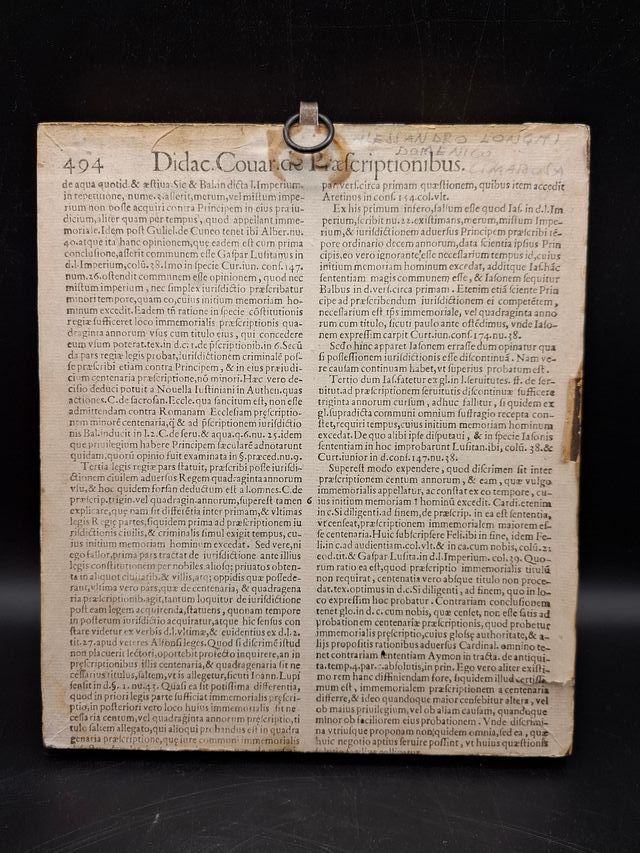 ALESSANDRO LONGHI
DOMENICO
CIMAROSA
494 Didac. Couar. de Præscriptionibus.
de aqua quotid. & æstiua. Sic & Bal. in dicta l. Imperium.
in repetitione, nume. 3. asserit, merum, vel mistum impe-
rium non posse acquiri contra Principem in eius præiu-
dicium, aliter quam per tempus, quod appellant imme-
moriale. Idem post Guliel. de Cuneo tenet ibi Alber. nu.
40. atque ita hanc opinionem, quæ eadem est cum prima
conclusione, asserit communem esse Gaspar Lusitanus in
d. l. Imperium, colū. 38. Imo in specie Cur. iun. cons. 147.
num. 26. ostendit communem esse opinionem, quod nec
mistum imperium, nec simplex iurisdictio præscribatur
minori tempore, quam eo, cuius initium memoriam ho-
minum excedit. Eadem tñ ratione in specie cōstitutionis
regiæ sufficeret loco immemorialis præscriptionis qua-
draginta annorum vsus cum titulo eius, qui concedere
eum vsium poterat. tex. in d. c. 1. de p̄scriptionib. in 6. Secū
da pars regiæ legis probat, iurisdictionem criminalē pos-
se præscribi etiam contra Principem, & in eius præiudi-
cium centenaria præscriptione, nō minori. Hæc vero de-
cisio deduci potuit a Nouella Iustiniani in Authen. quas
actiones. C. de sacrosan. Eccle. qua sancitum est, non esse
admittendam contra Romanam Ecclesiam præscriptio-
nem minorē centenaria, q̄ & ad p̄scriptionem iurisdictio
nis Bal. inducit in l. 2. C. de seru. & aqua. q. 6. nu. 25. idem
que priuilegium habere Principem sæcularē adnotarunt
quidam, quorū opinio fuit examinata in §. præced. nu. 9.
Tertia legis regiæ pars statuit, præscribi posse iurisdi-
ctionem ciuilem aduersus Regem quadraginta annorum
vsu, & hoc quidem forsan deductum est a l. omnes. C. de
præscrip. trigin. vel quadragin. annorum, superest tamen
explicare, quæ nam sit differētia inter primam, & vltimas
legis Regiæ partes, siquidem prima ad præscriptionem iu
risdictionis ciuilis, & criminalis simul exigit tempus, cu-
ius initium memoriam hominum excedat. Sed vere, ni
ego fallor, prima pars tractat de iurisdictione ante illius
legis constitutionem per nobiles, aliosq; priuatos obten-
ta in aliquot ciuitatib. & villis, atq; oppidis quæ possede-
rant, vltima vero pars, quæ de centenaria, & quadragena
ria præscriptionib. agit, tantum loquitur de iurisdictione
post eam legem acquirenda, statuens, quonam tempore
in posterum iurisdictio acquiratur, atque hic sensus con
stare videtur ex verbis d. l. vltimæ, & euidentius ex d. l. 2.
tit. 27. apud veteres Alfonsi leges. Quod si discrimē istud
non placuerit lectori, oportebit profecto inquirere, an in
præscriptionibus illis centenaria, & quadragenaria sit ne
cessarius titulus, saltem, vt is allegetur, sicuti Ioann. Lupi
sensit in d. §. 1. nu. 45. Quasi ea sit potissima differentia,
quod in priori legis parte sufficiat immemorialis præscri-
ptio, in posteriori vero loco huius immemorialis sit ne-
cessaria centum, vel quadraginta annorum præscriptio, ti
tulo saltem allegato, qui alioqui probandus est in quadra
genaria præscriptione, quæ iure communi immemorialis
par. vers. circa primam quæstionem, quibus item accedit
Aretinus in cons. 154. col. vlt.
Ex his primum infero, falsum esse quod Ias. in d. l. Im
perium, scribit nu. 22. existimans, merum, mistum Impe-
rium, & iurisdictionem aduersus Principem præscribi tē-
pore ordinario decem annorum, data scientia ipsius Prin
cipis, eo vero ignorante, esse necessarium tempus id, cuius
initium memoriam hominum excedat, additque Ias. hāc
sententiam magis communem esse, & Iasonem sequitur
Balbus in d. vers. circa primam. Etenim etiā sciente Prin
cipe ad præscribendum iurisdictionem ei competētem,
necessarium est tp̄s immemoriale, vel quadraginta anno
rum cum titulo, sicuti paulo ante ostēdimus, vnde Iaso-
nem expressim carpit Curt. iun. cons. 174. nu. 38.
Scd̄o hinc apparet Iasonem errasse dum opinatur qua
si possessionem iurisdictionis esse discontinuā. Nam ve-
re causam continuam habet, vt superius probatum est.
Tertio dum Ias. fatetur ex gl. in l. seruitutes. ff. de ser-
uitut. ad præscriptionem seruitutis discontinuæ sufficere
triginta annorum cursum, adhuc fallitur, si quidem ex
gl. supradicta communi omnium suffragio recepta con-
stet, requiri tempus, cuius initium memoriam hominum
excedat. De quo alibi ipse disputaui, & in specie Iasonis
sententiam in hoc improbarunt Lusitan. ibi, colū. 38. &
Curt. iunior in d. cons. 147. nu. 38.
Superest modo expendere, quod discrimen sit inter
præscriptionem centum annorum, & eam, quæ vulgo
immemorialis appellatur, ac constat ex eo tempore, cu-
6 ius initium memoriam † hominū excedit. Card. etenim
in c. Si diligenti. ad finem, de præscrip. in ea est sententia,
vt censeat, præscriptionem immemorialem maiorem es-
se centenaria. Huic subscripsere Feli. ibi in fine, idem Fe-
li. in c. ad audientiam. col. vlt. & in ca. cum nobis, colū. 21
eod. tit. & Gaspar Lusita. in d. l. Imperium. col. 39. Quo-
rum ratio ea est, quod præscriptio immemorialis titulū
non requirat, centenaria vero absque titulo non proce-
dat. tex. optimus in d. c. Si diligenti, ad finem, quo in lo-
co expressim hoc probatur. Contrariam conclusionem
tenet glo. in d. c. cum nobis, quæ censet, non esse satis ad
probationem centenariæ præscriptionis, quod probetur
immemorialis præscriptio, cuius glossæ authoritate, & a-
lijs propositis rationibus aduersus Cardinal. omnino te-
net contrariam sententiam Aymon in tracta. de antiqui-
ta. temp. 4. par. 2. absolutis, in prin. Ego vero aliter existi-
mo rem hanc diffiniendam fore, siquidem illud certissi-
mum est, immemorialem præscriptionem a centenaria
differre, & ideo quandoque maior censebitur altera, vel
ob maius priuilegium, vel ob aliam causam, quandoque
minor ob faciliorem eius probationem. Vnde discrimi-
na vtriusque proponam non quidem omnia, sed ea, quæ
huic negotio aptius seruire possint, vt huius quæstionis